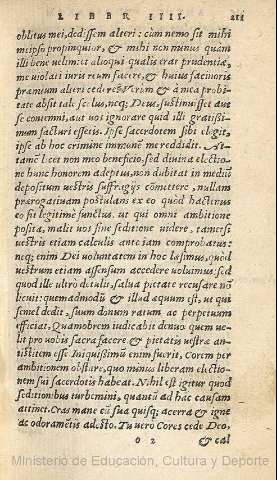 LIBER IIII. 211
oblitus mei, dedissem alteri: cum nemo sit mihi
meipso propinquior, & mihi non minus quàm
illi bene uelim: ea alioqui qualis erat prudentia,
me uiolati iuris reum facere, & huius facinoris
præmium alteri cedere? Verùm & à mea probi-
tate absit tale scelus, neq; Deus, sustinuisset aut
se contemni, aut uos ignorare quid illi gratissi-
mum facturi essetis. Ipse sacerdotem sibi elegit,
ipse ab hoc crimine immune me reddidit. At-
tamẽ licet non meo beneficio, sed diuina electio-
ne hunc honorem adeptus, non dubitat in mediũ
depositum uestris suffragijs cõmittere, nullam
prærogatiuam postulans ex eo quòd hactenus
eo sit legitimè functus. ut qui omni ambitione
posita, malit uos sine seditione uidere, tametsi
uestris etiam calculis ante iam comprobatus:
neq; enim Dei uoluntatem in hoc læsimus, quòd
uestrum etiam assensum accedere uoluimus: sed
quod ille ultro detulit, salua pietate recusare nõ
licuit: quemadmodũ & illud æquum est, ut qui
semel dedit, suum donum ratum ac perpetuum
efficiat. Quamobrem iudicabit denuo quem ue-
lit pro uobis sacra facere & pietatis uestræ an-
tistitem esse. Iniquissimũ enim fuerit, Corem per
ambitionem obstare, quo minus liberam electio-
nem sui sacerdotis habeat. Nihil est igitur quod
seditionibus turbemini, quantũ ad hac causam
attinet. Cras mane cũ sua quisq; acerra & igne
ac odoramẽtis adesto. Tu uerò Cores cede Deo,
o 2 & cal
Ministerio de Educación, Cultura y Deporte